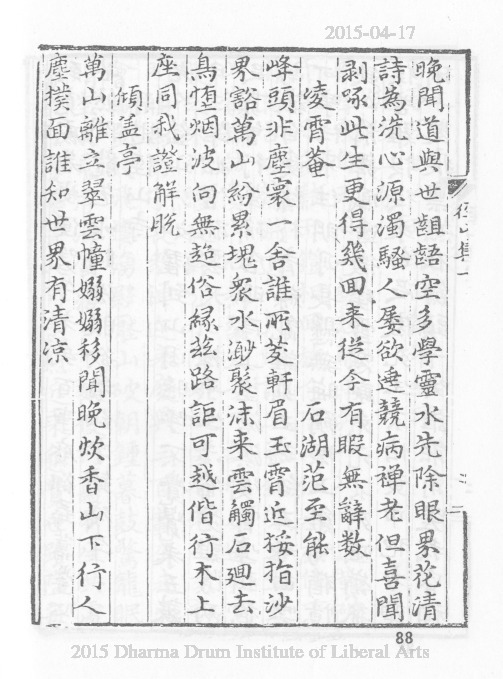 2015-04-17
晚聞道與世齟齬空多學靈水先除眼界花清
詩為洗心源濁騷人屡欲逮競病禅老但喜聞
剥啄此生更得幾回来從今有暇無辭数
崚霄菴　石湖范至能
峰頭非塵寰一舍誰所茇軒眉玉霄近挼指沙
界豁萬山紛累塊衆水渺聚沫来雲觸石廻去
鳥堕烟波向無超俗縁兹路詎可越偕行木上
座同我證解脱
傾盖亭
萬山離立翠雲幢嫋嫋移聞晚炊香山下行人
塵撲面誰知世界有清凉
88
2015 Dharma Drum Institute of Liberal Arts